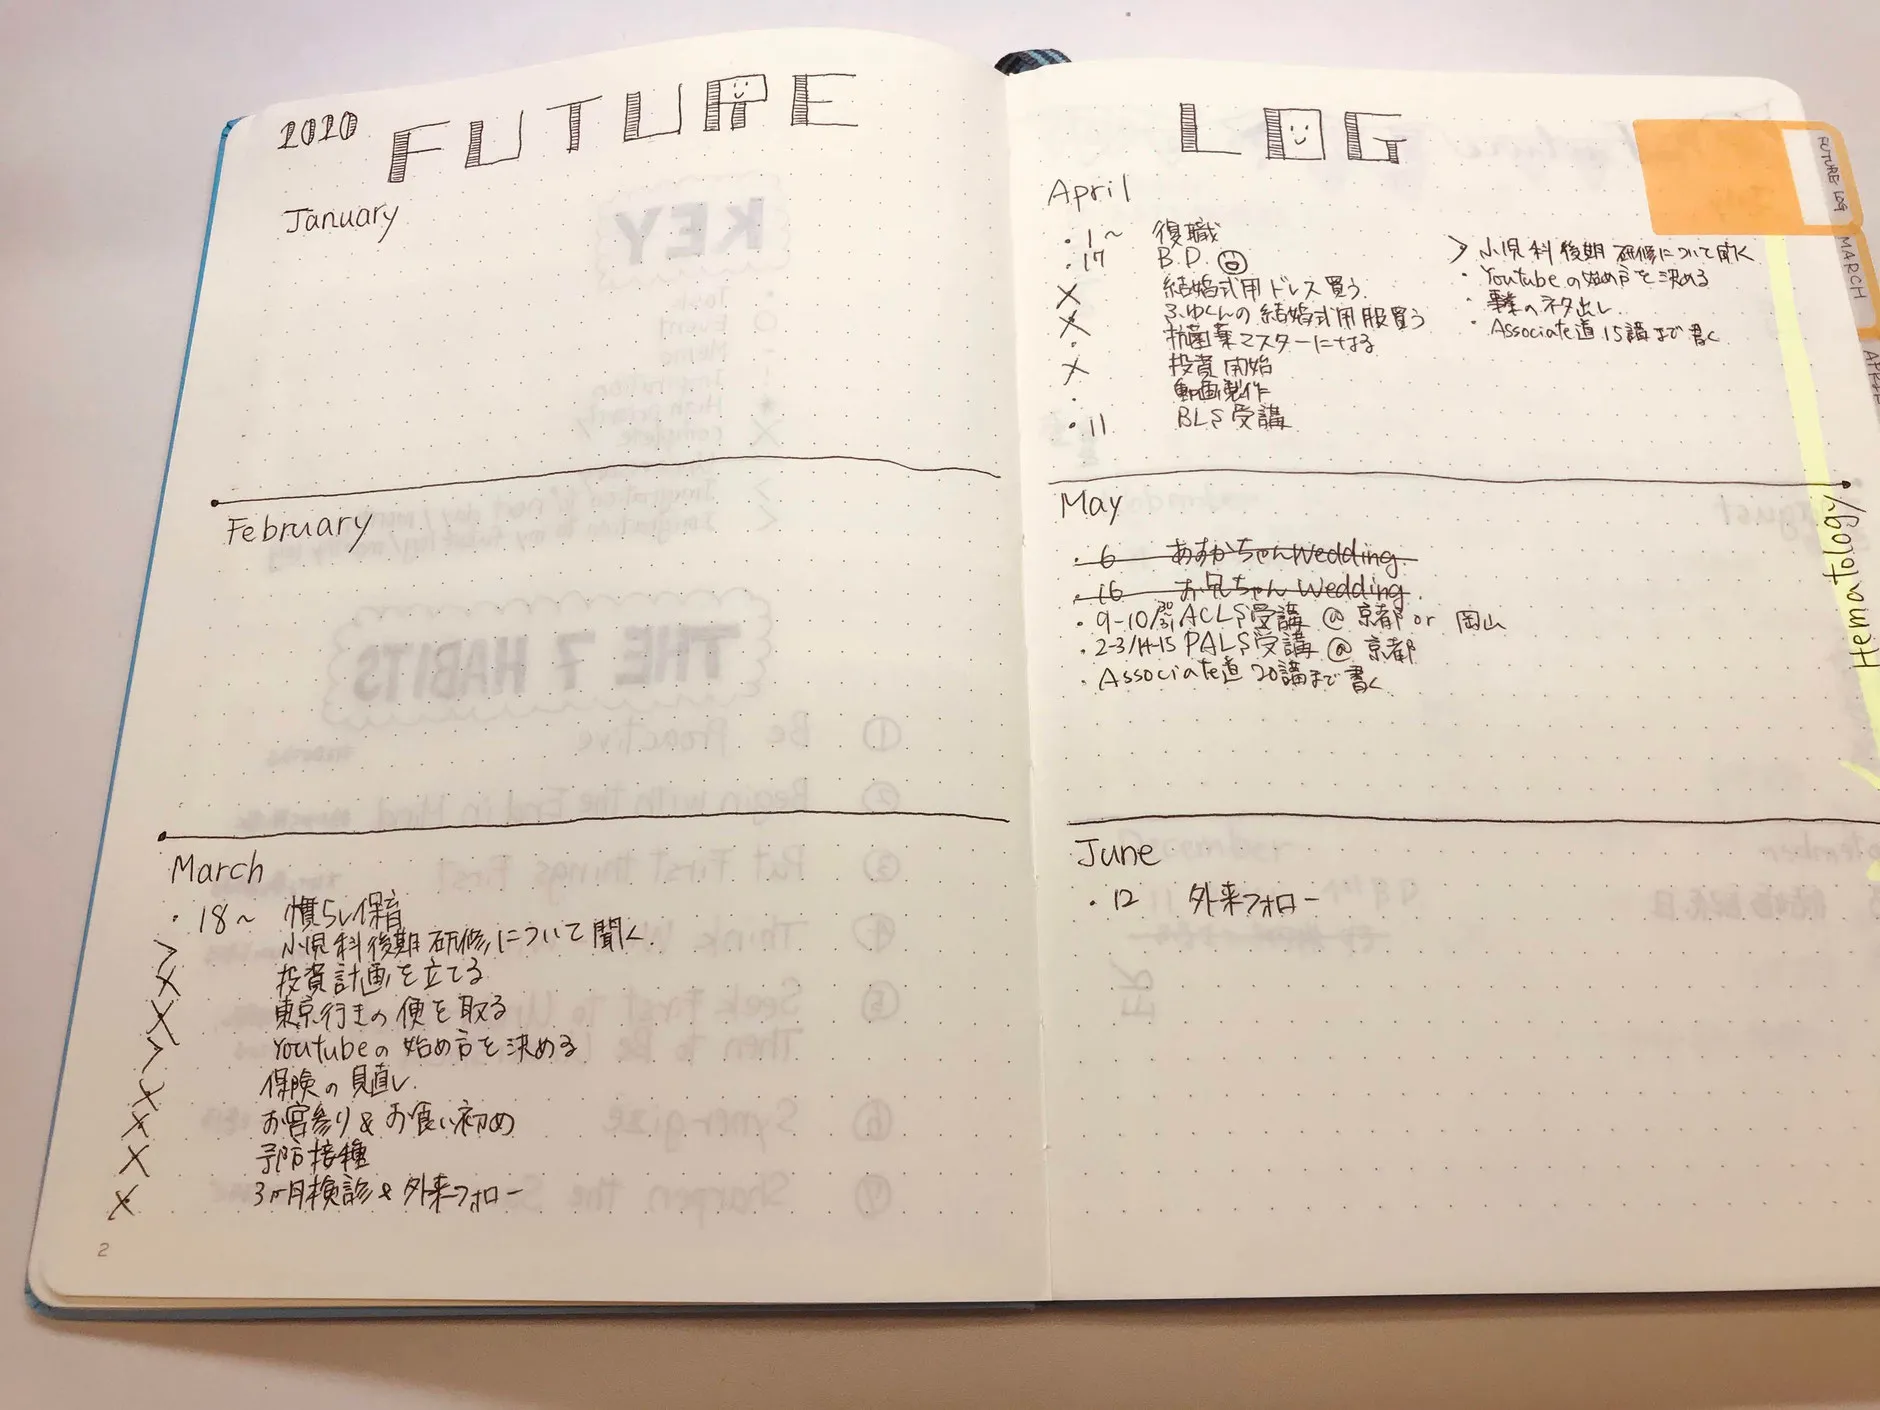 2020 FUTURE
January
February
March
・18〜 慣らし保育
> 小児科後期研修について聞く
× 投資計画を立てる
× 東京行きの便を取る
> Youtubeの始め方を決める
× 保険の見直し
× お宮参り & お食い初め
× 予防接種
× 3ヶ月検診 & 外来フォロー
2
LOG
April
・1〜 復職
・17 B.D.
× 結婚式用ドレス買う
× ふゆくんの結婚式用服買う
・ 抗菌薬マスターになる
× 投資開始
・ 動画製作
・11 BLS受講
> 小児科後期研修について聞く
・Youtubeの始め方を決める
・事業のネタ出し
・Associate道15講まで書く
May
・6 あすかちゃんWedding
・16 お兄ちゃんWedding
・9-10/30-31 ACLS受講 @ 京都 or 岡山
・2-3/14-15 PALS受講 @ 京都
・Associate道20講まで書く
June
・12 外来フォロー
FUTURE LOG
MARCH
Hematology
KEY
Task
Event
Memo
Inspiration
complete
THE 7 HABITS
① Be Proactive
② Begin with the End in Mind
③ Put First things First
④ Think W
⑤ Seek First to U
Then to Be
⑥ Synergize
⑦ Sharpen the S